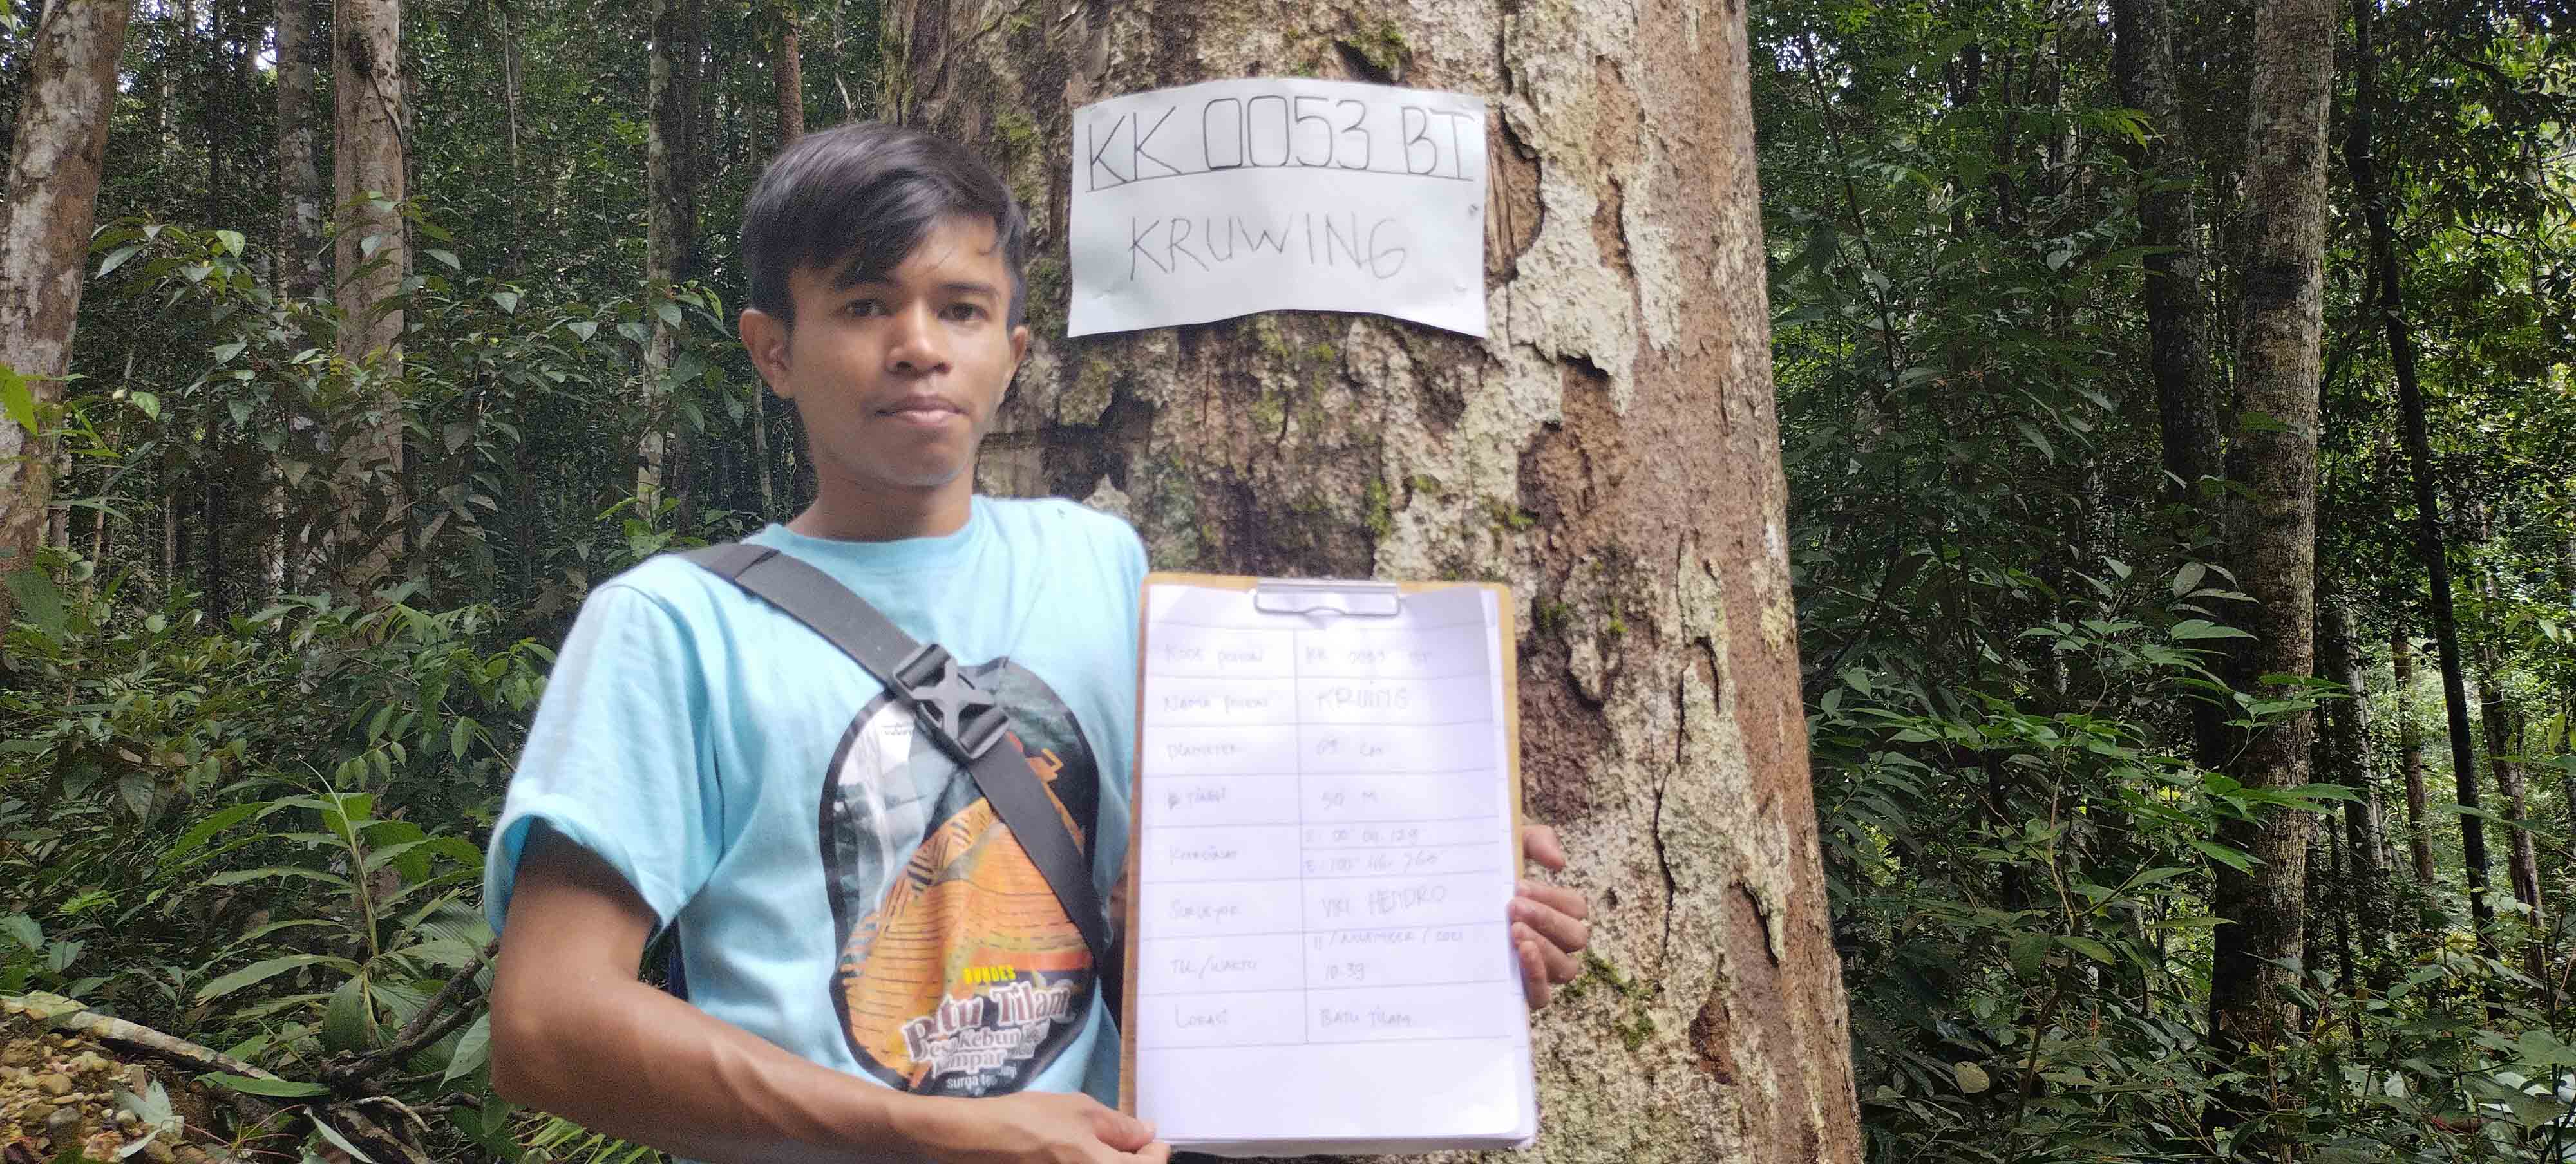 KK 0053 BT
KRUWING
KODE POHON KK 0053 BT
NAMA POHON KRUING
DIAMETER 69 CM
TINGGI 50 M
KOORDINAT
E: 100° 46. 765
SURVEYOR VIKI HENDRO
11 / NOVEMBER / 2021
TGL / WAKTU 10.39
LOKASI BATU TILAM
Batu Tilam
Kebun
Kampar
surga